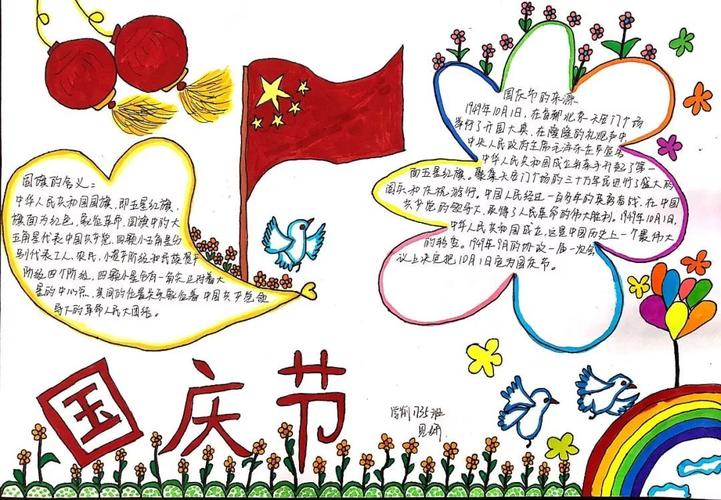 国旗的含义:
中华人民共和国国旗,即五星红旗,
旗面为红色,象征革命,国旗中的大
五角星代表中国共产党,四颗小五角星分
别代表工人,农民,小资产阶级和民族资产
阶级四个阶级,四颗小星各有一角尖正对着大
星的中心点,其间的位置关系象征着中国共产党领
导下的革命人民大团结。
国庆节的来源
1949年10月1日,在首都北京天安门广场
举行了开国大典,在隆隆的礼炮声中
中央人民政府主席毛泽东在庄严宣告
中华人民共和国成立并亲手升起了第一
面五星红旗。聚集天安门广场的三十万军民进行了盛大的
阅兵和庆祝游行。中国人民经过一百多年的英勇奋战,在中
国共产党的领导下,取得了人民革命的伟大胜利。1949年10月1日,
中华人民共和国成立,这是中国历史上一个最伟大
的转变。1949年9月的协议一届一次会
议上决定把10月1日定为国庆节。
国庆节